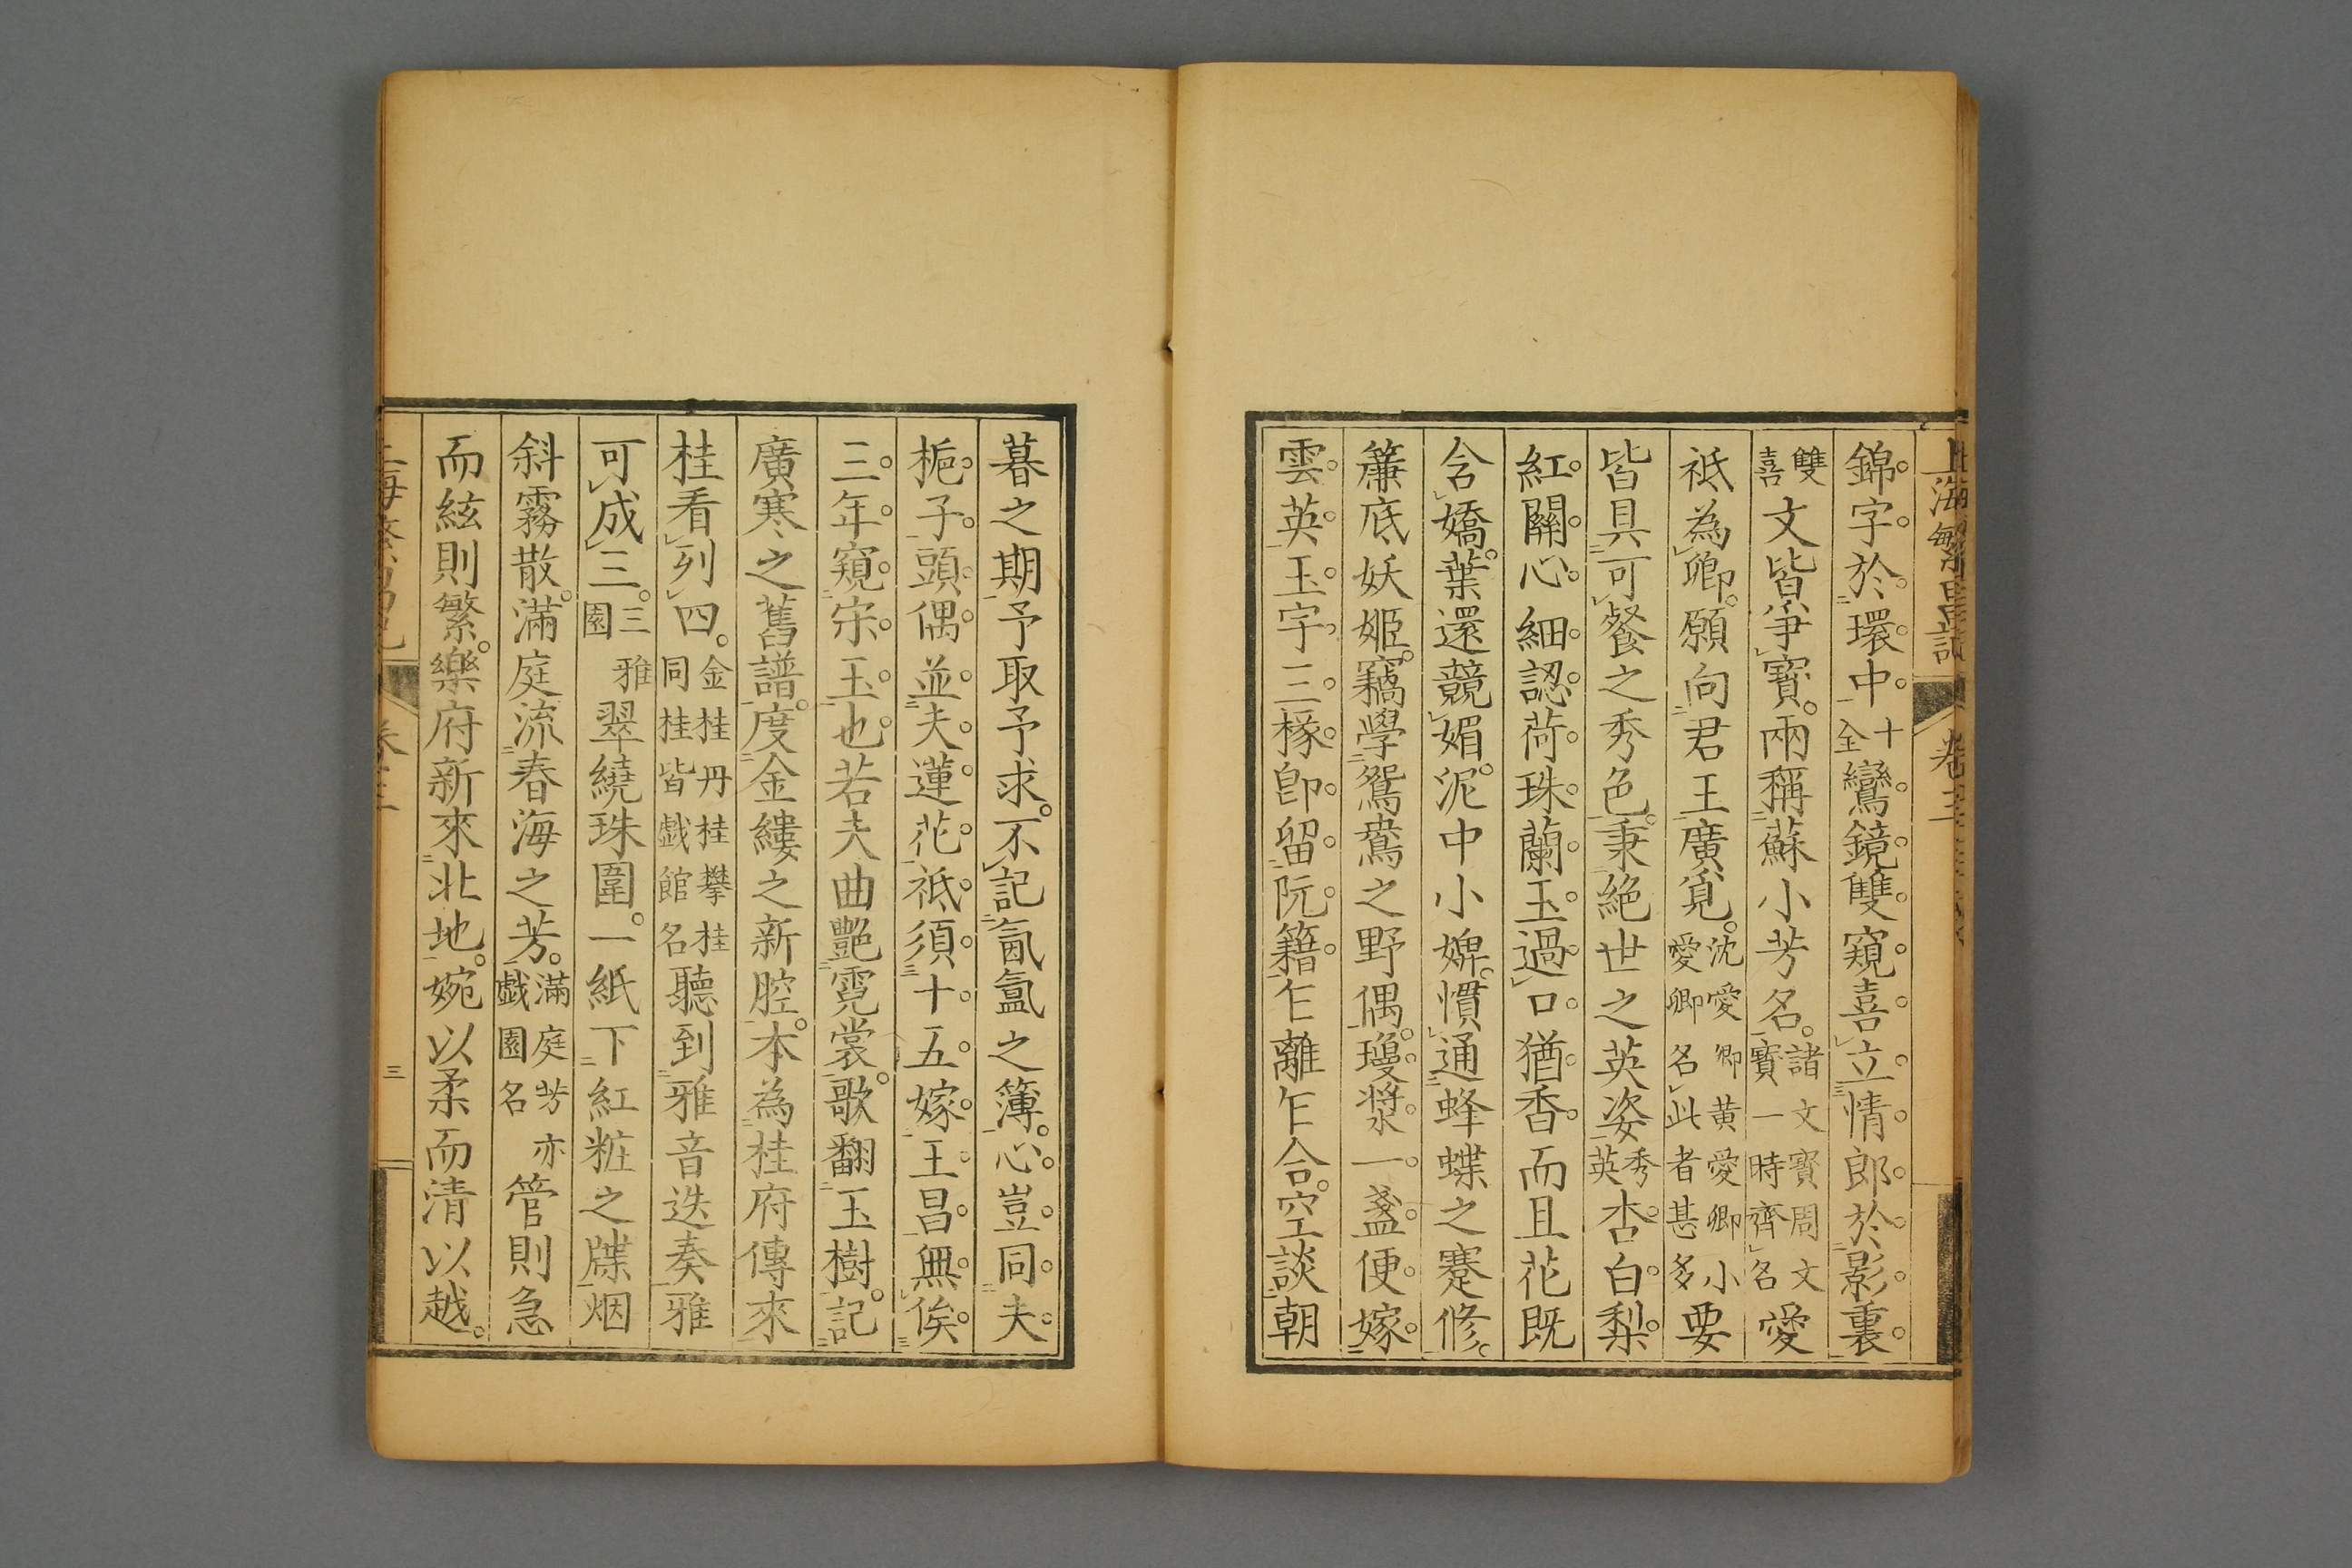 上海繁昌記 卷三
錦字於環中十全鸞鏡雙窺喜立情郎於影裏
雙喜文皆爭寶兩稱蘇小芳名諸文寶周文寶一時齊名愛
祗為卿願向君王廣覓沈愛卿黄愛卿小愛卿名此者甚多要
皆具可餐之秀色秉絶世之英姿秀英杏白梨
紅關心細認荷珠蘭玉過口猶香而且花既
含嬌葉還競媚泥中小婢慣通蜂蝶之蹇修
簾底妖姬竊學鴛鴦之野偶瓊漿一盞便嫁
雲英玉字三椽卽留阮籍乍離乍合空談朝
暮之期予取予求不記氤氳之簿心豈同夫
梔子頭偶並夫蓮花祗須十五嫁王昌無俟
三年窺宋玉也若夫曲艷霓裳歌翻玉樹記
廣寒之舊譜度金縷之新腔本為桂府傳來
桂看列四金桂丹桂攀桂同桂皆戯館名聽到雅音迭奏雅
可成三三雅園翠繞珠圍一紙下紅粧之牒烟
斜霧散滿庭流春海之芳滿庭芳亦戯園名管則急
而絃則繁樂府新來北地婉以柔而清以越
卷三
三